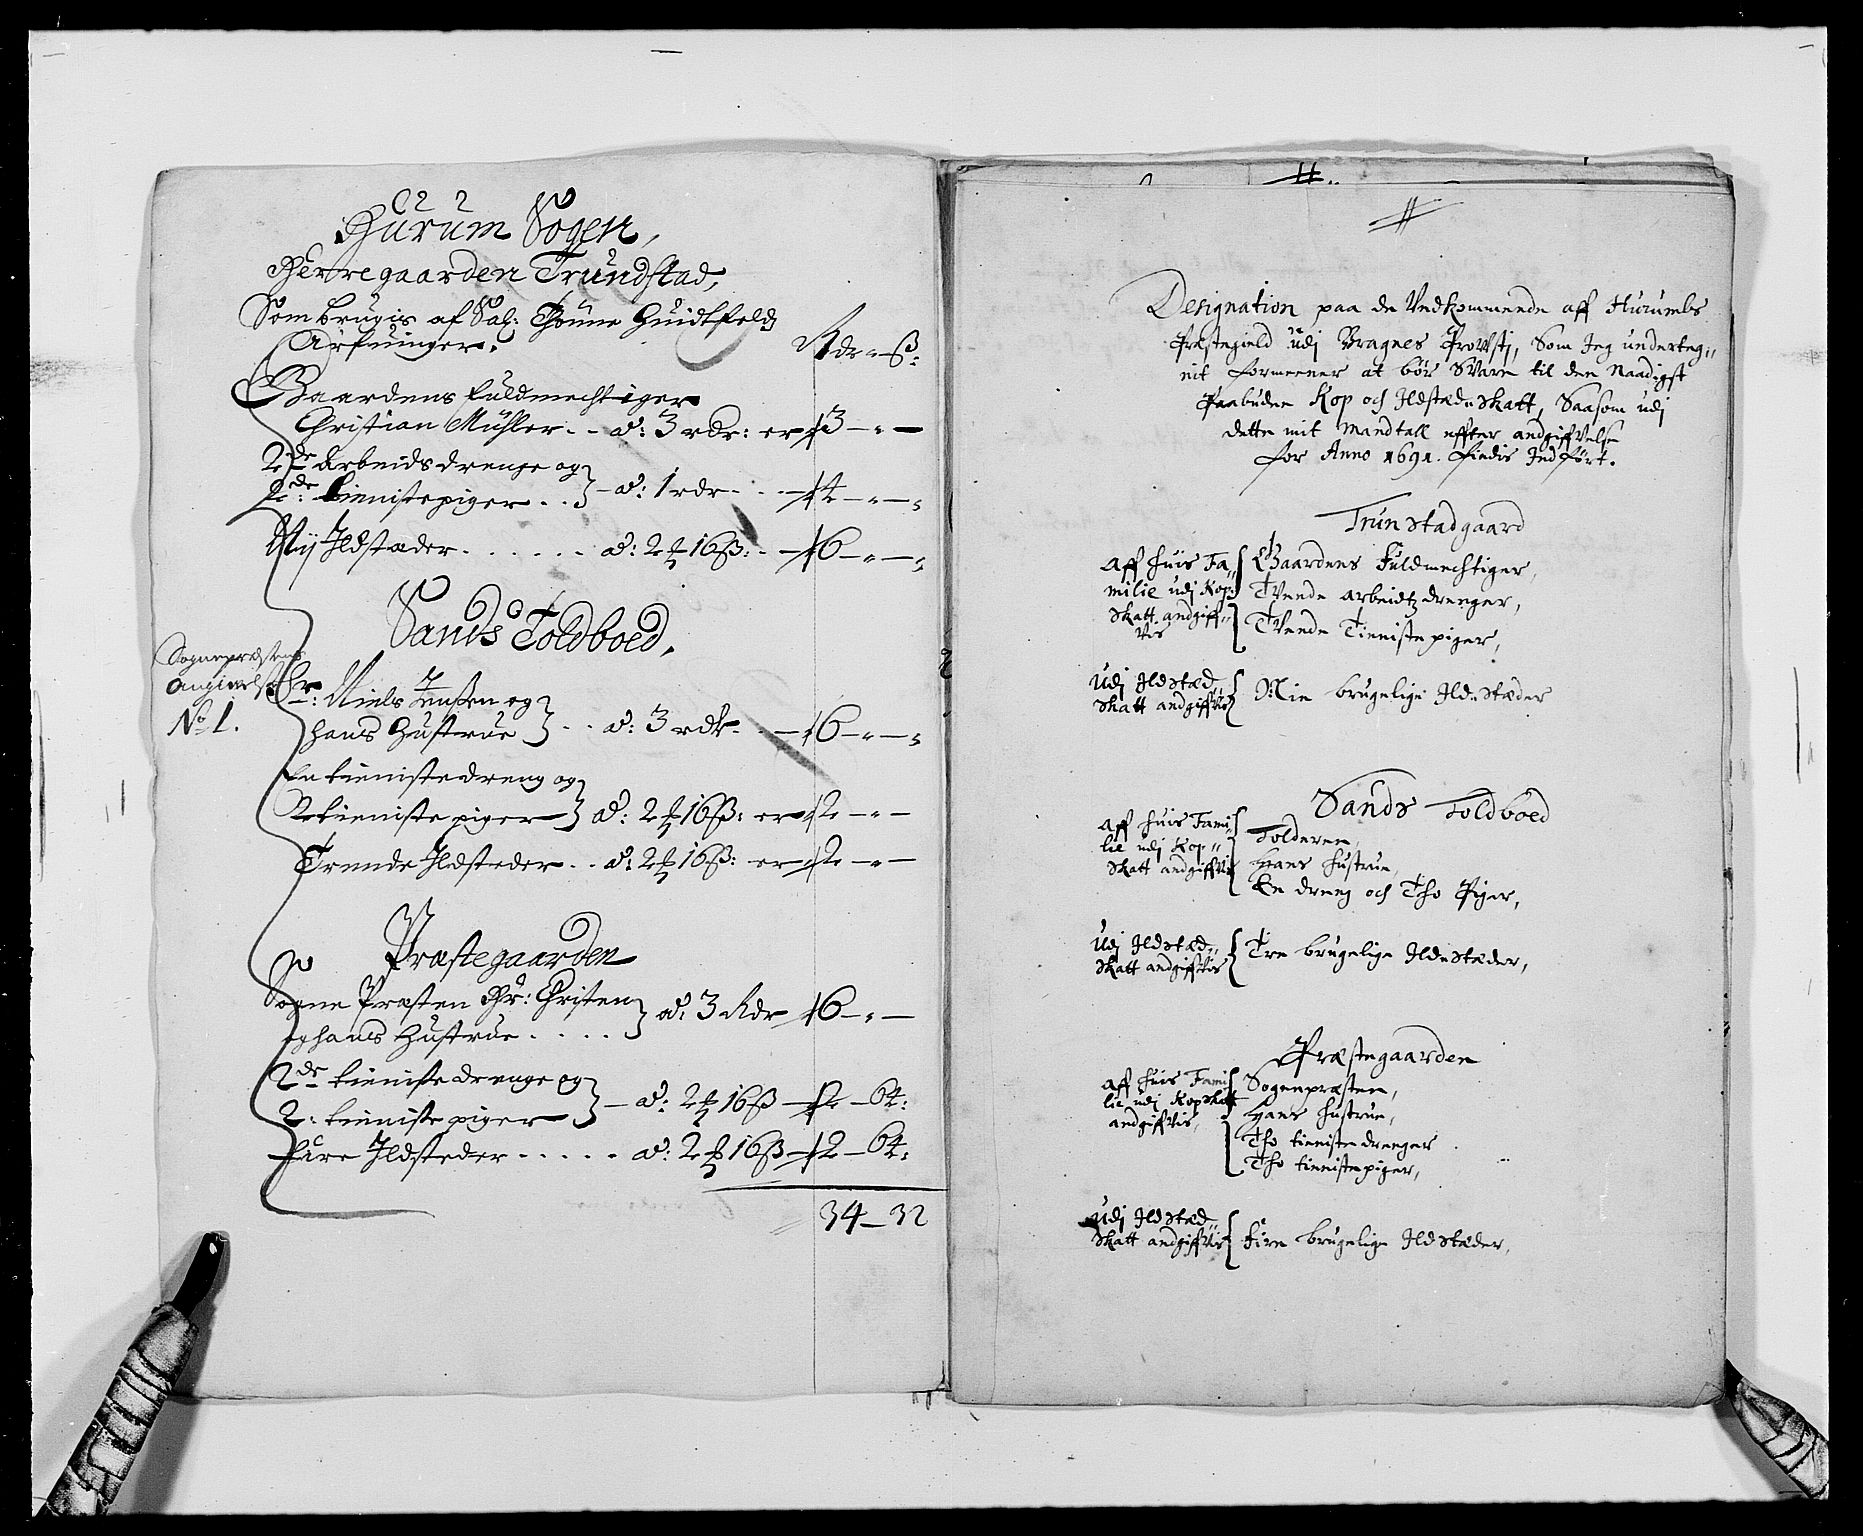 Hurum Sogen,
Herregaarden Trundstad,
Som brugis af Sal: Tönne Huidtfelds
Arfuinger.
Rdr - ß:
Gaardens fuldmechtiger
Christian Mühler - - a: 3 rdr: er 3 - " -
2de Arbeidsdrenge og
2de tienistepiger . . } - a: 1 rdr - . . - 4 - " - "
Nij Ildstæder . . . . . . a: 2 # 16 ß: - - 6 - " - "
Sands Toldboed,
Sognepræstens
angivelse
No 1.
Hr: Niels Jenssen og
hans Hustrue } . . a: 3 rdr - . - 6 - " - "
En tienistedreng og
2 tieniste piger } a: 2 # 16 ß: er 2 - " -
Trende Ildsteder . . a: 2 # 16 ß: er 2 - " -
Præstegaarden
Sogne Præsten Hr: Christen
og hans Hustrue . . . . } a: 3 Rdr 6 - " -
2de tieniste drenge og
2: tieniste piger } - a: 2 # 16 ß - 2 - 64:
Fiire Ildsteder . . . . . a: 2 # 16 ß - 2 - 64:
34 - 32
Designation paa de Vedkommende aff Hurumbs
Præstegield udj Bragnes Prowstj, Som Jeg underteg-
nit formeener at bör Svare til den Naadigst
Paabudne Kop och Ildstæde Skatt, Saasom udj
dette mit Mandtall effter andgiffvelse
for Anno 1691. findis Indfört.
Trunstadgaard
Aff huis Fa-
milie udj Kop-
Skatt andgiff-
vis
Gaardens Fuldmechtiger,
Tvende arbeidtz drenger,
Tvende Tieniste piger,
Udj Ildstæd-
Skatt andgiffvis
Nie brugelige Ildestæder
Sands Toldboed
Aff huis Fami-
lie udj Kop-
Skatt andgiffvis
Tolderen,
Hans hustrue,
En dreng och Tho Piger,
Udj Ildstæd-
Skatt andgiffvis
Tre brugelige Ildestæder,
Præstegaarden
Aff huis Fami-
lie udj Kopskatt
andgiffvis,
Sogenpræsten,
Hans hustrue,
Tho tieniste drenger
Tho tienistepiger,
Udj Ildstæd-
Skatt andgiffvis
Fire brugelige Ildstæder,